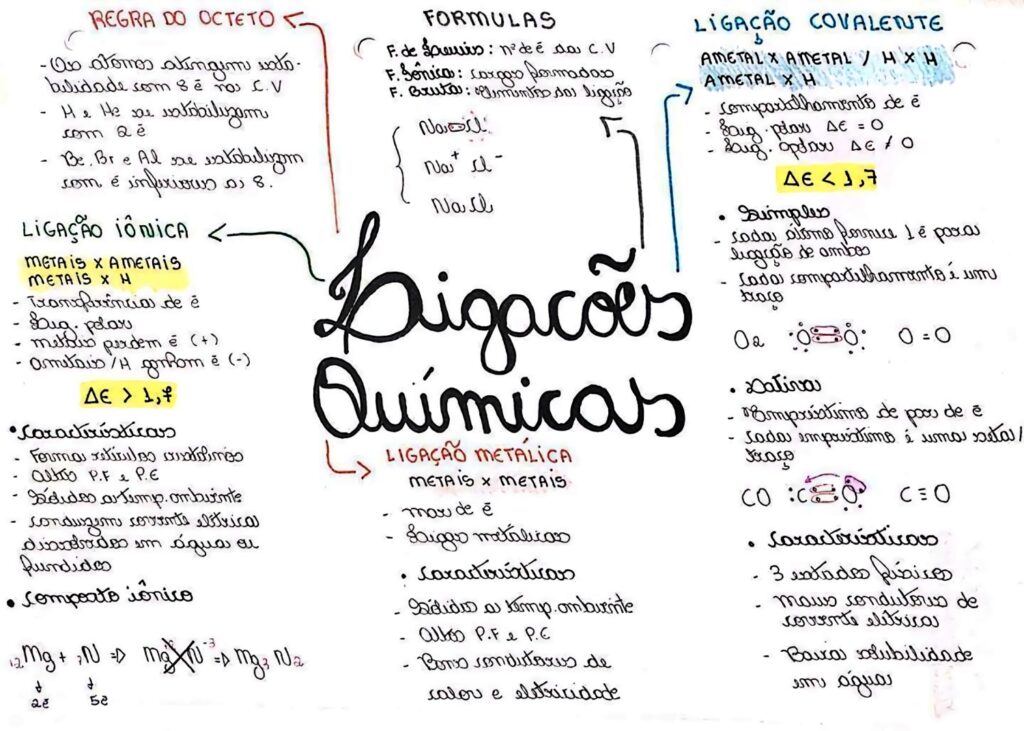 REGRA DO OCTETO
- Os átomos atingem esta-
bilidade com 8 ē na C.V
- H e He se estabilizam
com 2 ē
- Be, Br e Al se estabilizam
com ē inferiores a 8.
FORMULAS
F. de Lewis: nº de ē da C.V
F. Iônica: cargas formadas
F. Bruta: Elementos da ligação
Na Cl
Na⁺ Cl⁻
NaCl
LIGAÇÃO COVALENTE
AMETAL X AMETAL / H X H
AMETAL X H
- compartalhamento de ē
- Lig. polar ΔE = 0
- Lig. apolar ΔE ≠ 0
ΔE < 1,7
• Simples
- cada átomo fornece 1 ē para
ligação de ambos
- cada compartalhamento é um
traço
O2 O O O = O
• Dativa
- Empréstimo de par de ē
- cada empréstimo é uma seta/
traço
CO :C O C ≡ O
• características
- 3 estados físicos
- Maus condutores de
corrente elétrica
- Baixa solubilidade
em água
LIGAÇÃO IÔNICA
METAIS X AMETAIS
METAIS X H
- Transferência de ē
- Lig. polar
- metais perdem ē (+)
- ametais/H ganham ē (-)
ΔE > 1,7
• características
- Forma retículos cristalinos
- Altos P.F e P.E
- Sólidos a temp. ambiente
- conduzem corrente elétrica
dissolvidos em água ou
fundidos
• composto iônico
₁₂Mg + ₇N ⇒ Mg N⁻³ ⇒ Mg₃ N₂
2ē 5ē
Ligações
Químicas
LIGAÇÃO METÁLICA
METAIS X METAIS
- mar de ē
- Ligas metálicas
• características
- Sólidos a temp. ambiente
- Altos P.F e P.E
- Bons condutores de
calor e eletricidade